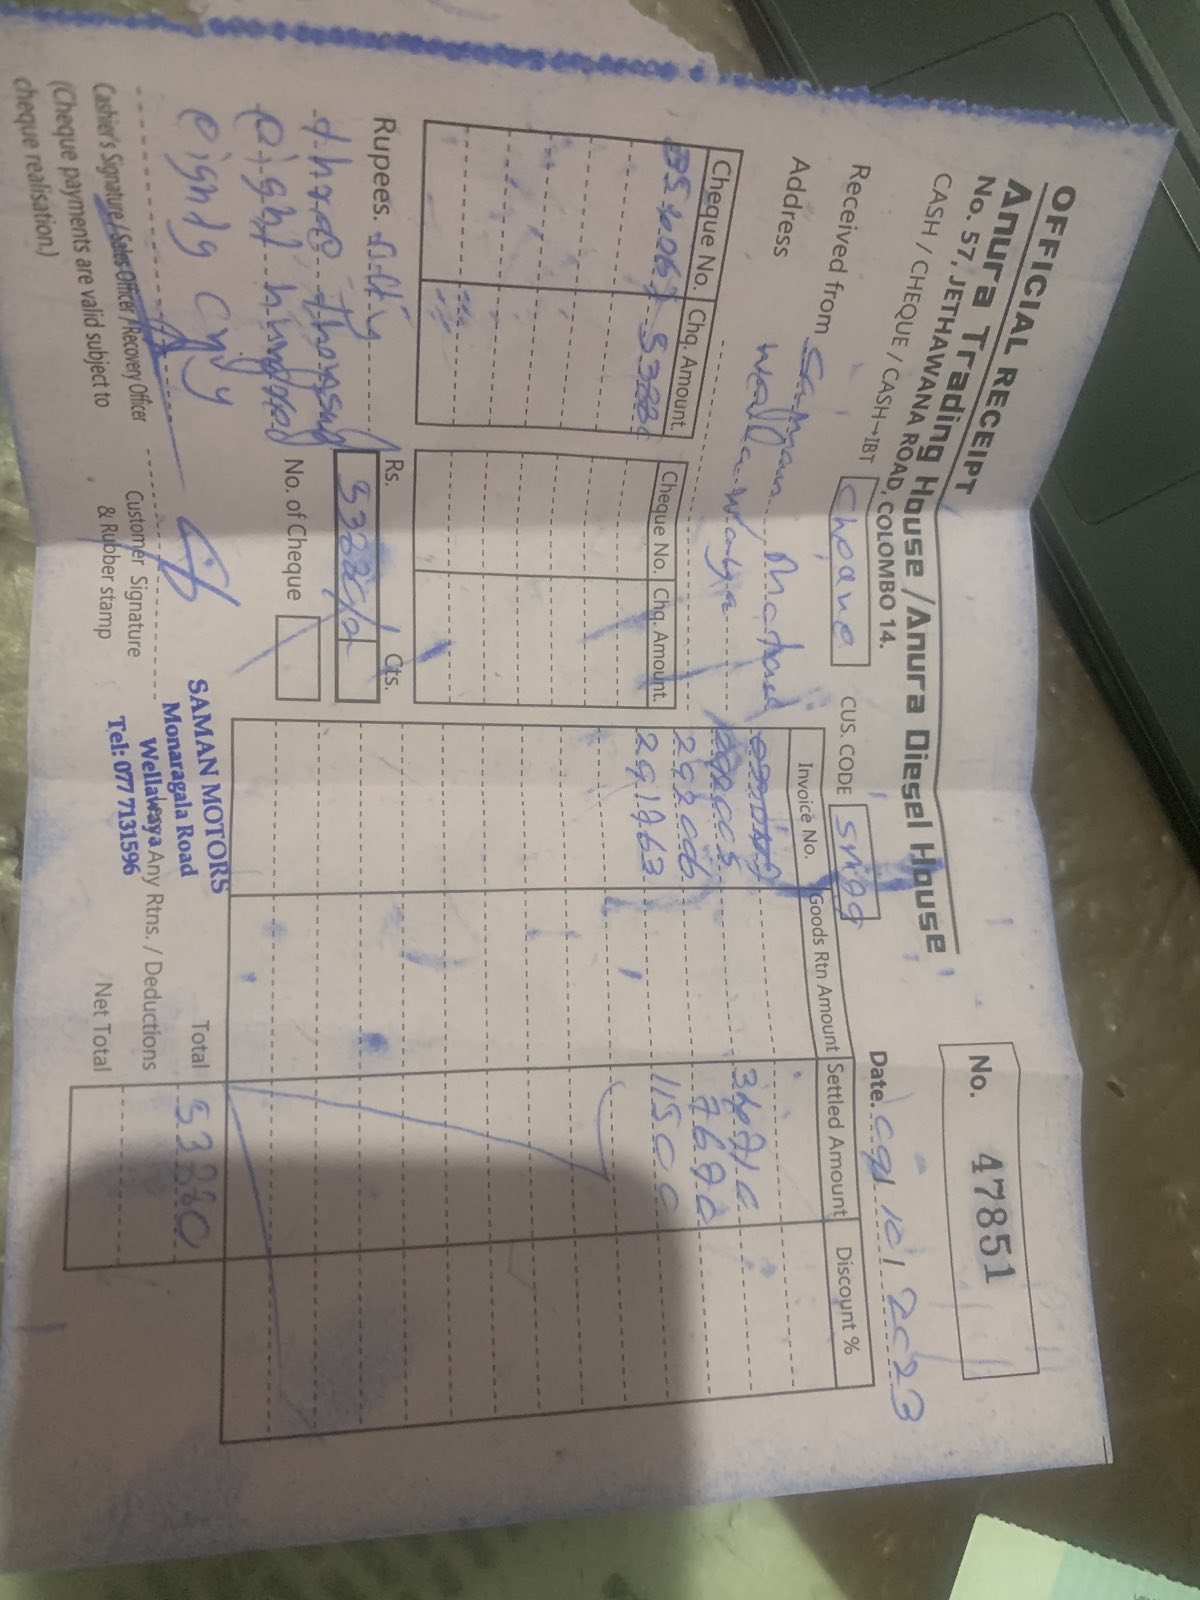 OFFICIAL RECEIPT
Anura Trading House / Anura Diesel House
No. 57, JETHAWANA ROAD, COLOMBO 14.
No. 47851
CASH / CHEQUE / CASH→IBT
CUS. CODE
Date. 2023
Received from Saman
Address Wellawaya
Cheque No. Chq. Amount.
Cheque No. Chq. Amount.
Invoice No. Goods Rtn Amount Settled Amount Discount %
7670
292006 11500
291963
Rupees. fifty
three thousand
eight hundred
eighty
Rs. Cts.
No. of Cheque
Total 53880
Any Rtns. / Deductions
Net Total
Cashier's Signature / Sales Officer / Recovery Officer
(Cheque payments are valid subject to
cheque realisation.)
Customer Signature
& Rubber stamp
SAMAN MOTORS
Monaragala Road
Wellawaya
Tel: 077 7131596